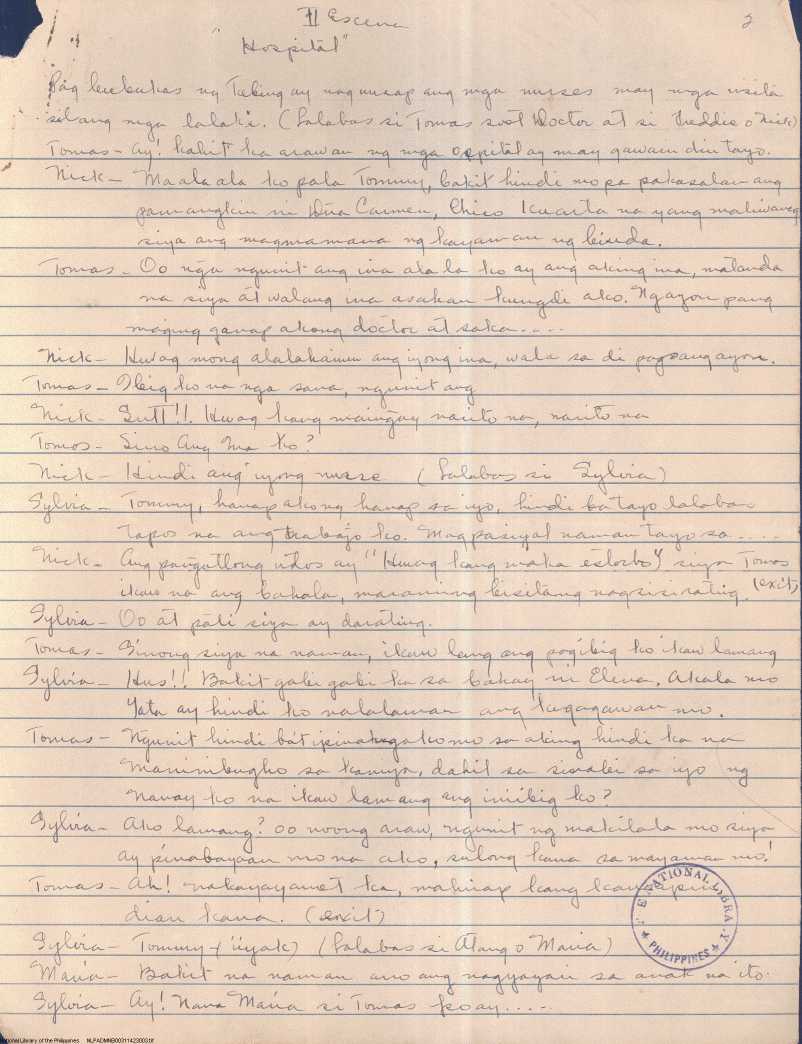 II Escena
2
"Hospital"
Pag bubukas ng Tabing ay naguusap ang mga nurses may mga visita
silang mga lalaki. (Lalabas si Tomas suot Doctor at si Freddie o Nick)
Tomas - Ay! kahit ka arawan ng mga ospital ay may gawain din tayo.
Nick - Maala ala ko pala Tommy, bakit hindi mo pa pakasalan ang
pamangkin ni Dña Carmen, Chico kuarta na yang maliwanag
siya ang magmamana ng kayaman ng biuda.
Tomas - Oo nga ngunit ang ina ala la ko ay ang aking ina, matanda
na siya at walang ina asahan kungdi ako. Ngayon pang
maging ganap akong doctor at saka....
Nick - Huag mong alalahanin ang iyong ina, wala sa di pagsangayon.
Tomas - Ibig ko na nga sana, ngunit ang
Nick - Sutt!!. Huag kang maingay narito na, narito na
Tomas - Sino Ang Ma Ko?
Nick - Hindi ang iyong nurse (Lalabas si Sylvia)
Sylvia - Tommy, hanap akong hanap sa iyo, hindi ba tayo lalabas
tapos na ang trabajo ko. Magpasiyal naman tayo sa.....
Nick - Ang pangatlong utos ay "Huag kang maka estorbo" siya Tomas
ikaw na ang bahala, maraming bisitang nagsisirating. (exit)
Sylvia - Oo at pati siya ay darating.
Tomas - Sinong siya na naman, ikaw lang ang pagibig ko ikaw lamang
Sylvia - Hus!! Bakit gabi gabi ka sa bahay ni Elena. Akala mo
Yata ay hindi ko nalalaman ang kagagawan mo.
Tomas - Ngunit hindi ba't ipinangako mo sa aking hindi ka na
maninibugho sa kaniya, dahil sa sinabi sa iyo ng
Nanay ko na ikaw lamang ang iniibig ko?
Sylvia - Ako lamang? oo noong araw, ngunit ng makilala mo siya
ay pinabayaan mo na ako, sulong kana sa mayaman mo!
Tomas - Ah! nakayayamot ka, mahirap kang
dian kana. (exit)
Sylvia - Tommy - (iiyak) (Lalabas si Atang o Maria)
Maria - Bakit na naman ano ang nagyayari sa anak na ito.
Sylvia - Ay! Nana Maria si Tomas po ay.....
NATIONAL LIBRARY
★ PHILIPPINES ★
National Library of the Philippines NLPADMNB00311423003.tif